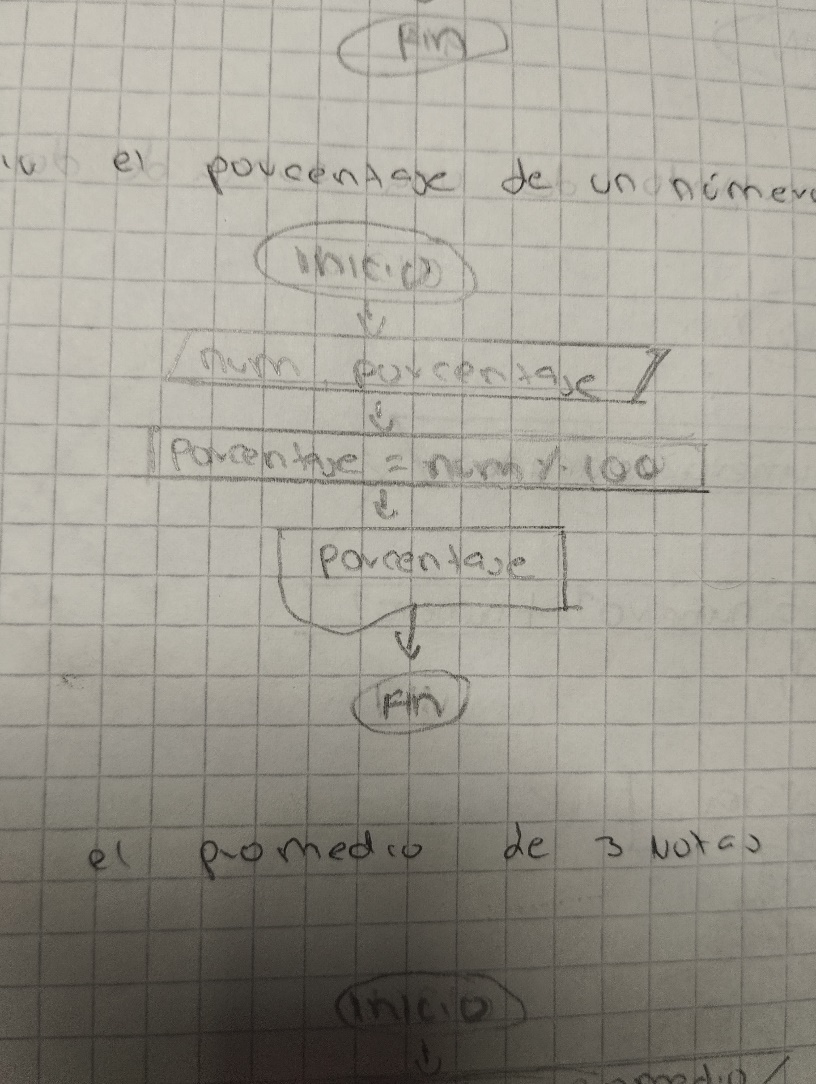 Fin
el porcentaje de un número
inicio
num, porcentaje
Porcentaje = num % 100
Porcentaje
Fin
el promedio de 3 Notas
inicio